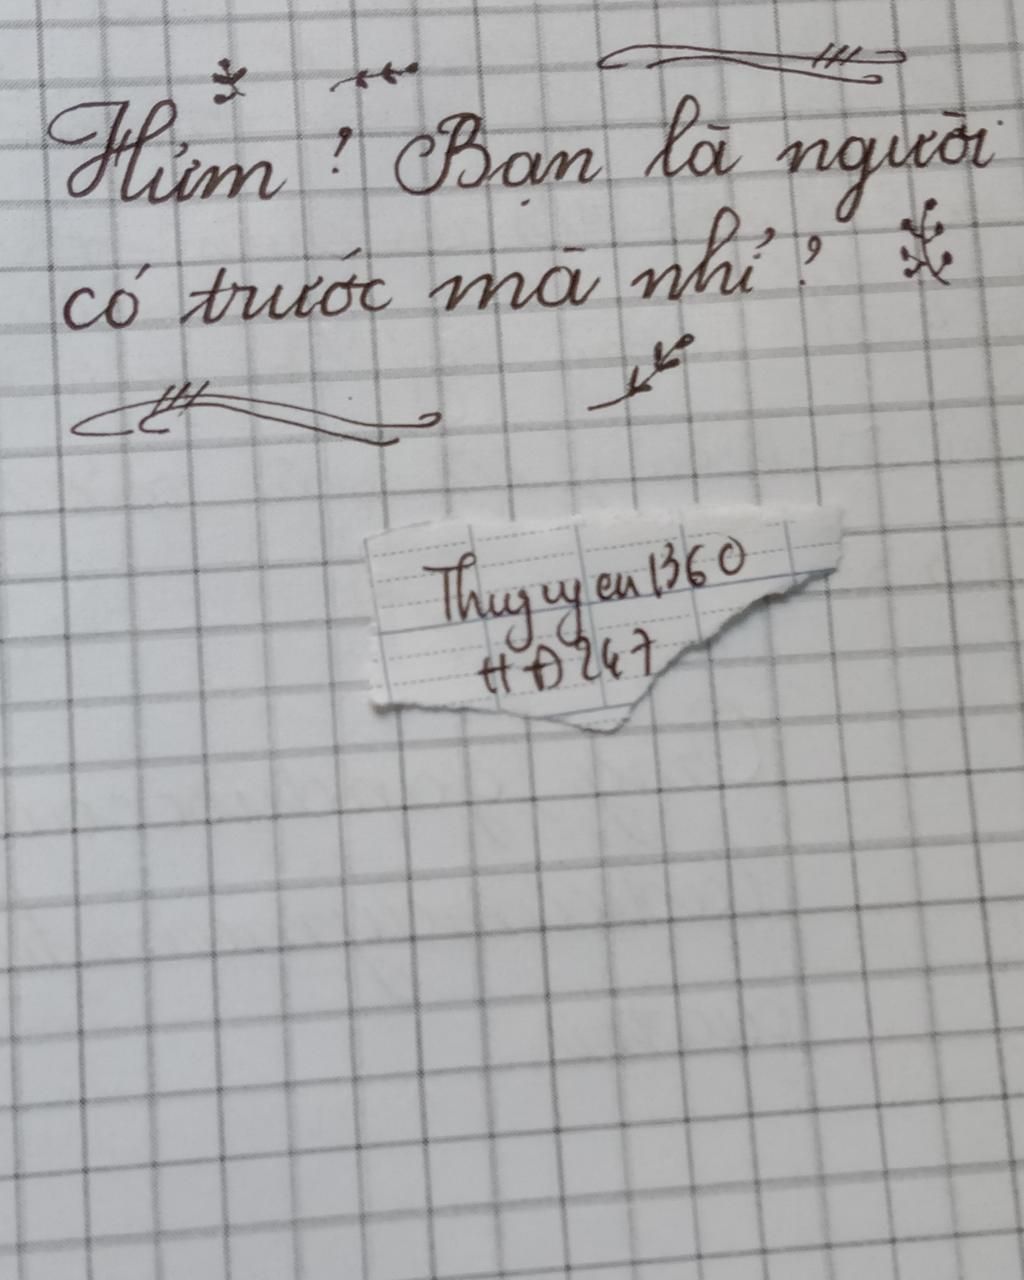 Hửm ? Bạn là người
có trước mà nhỉ ?
Thuyuyen1360
HĐ247